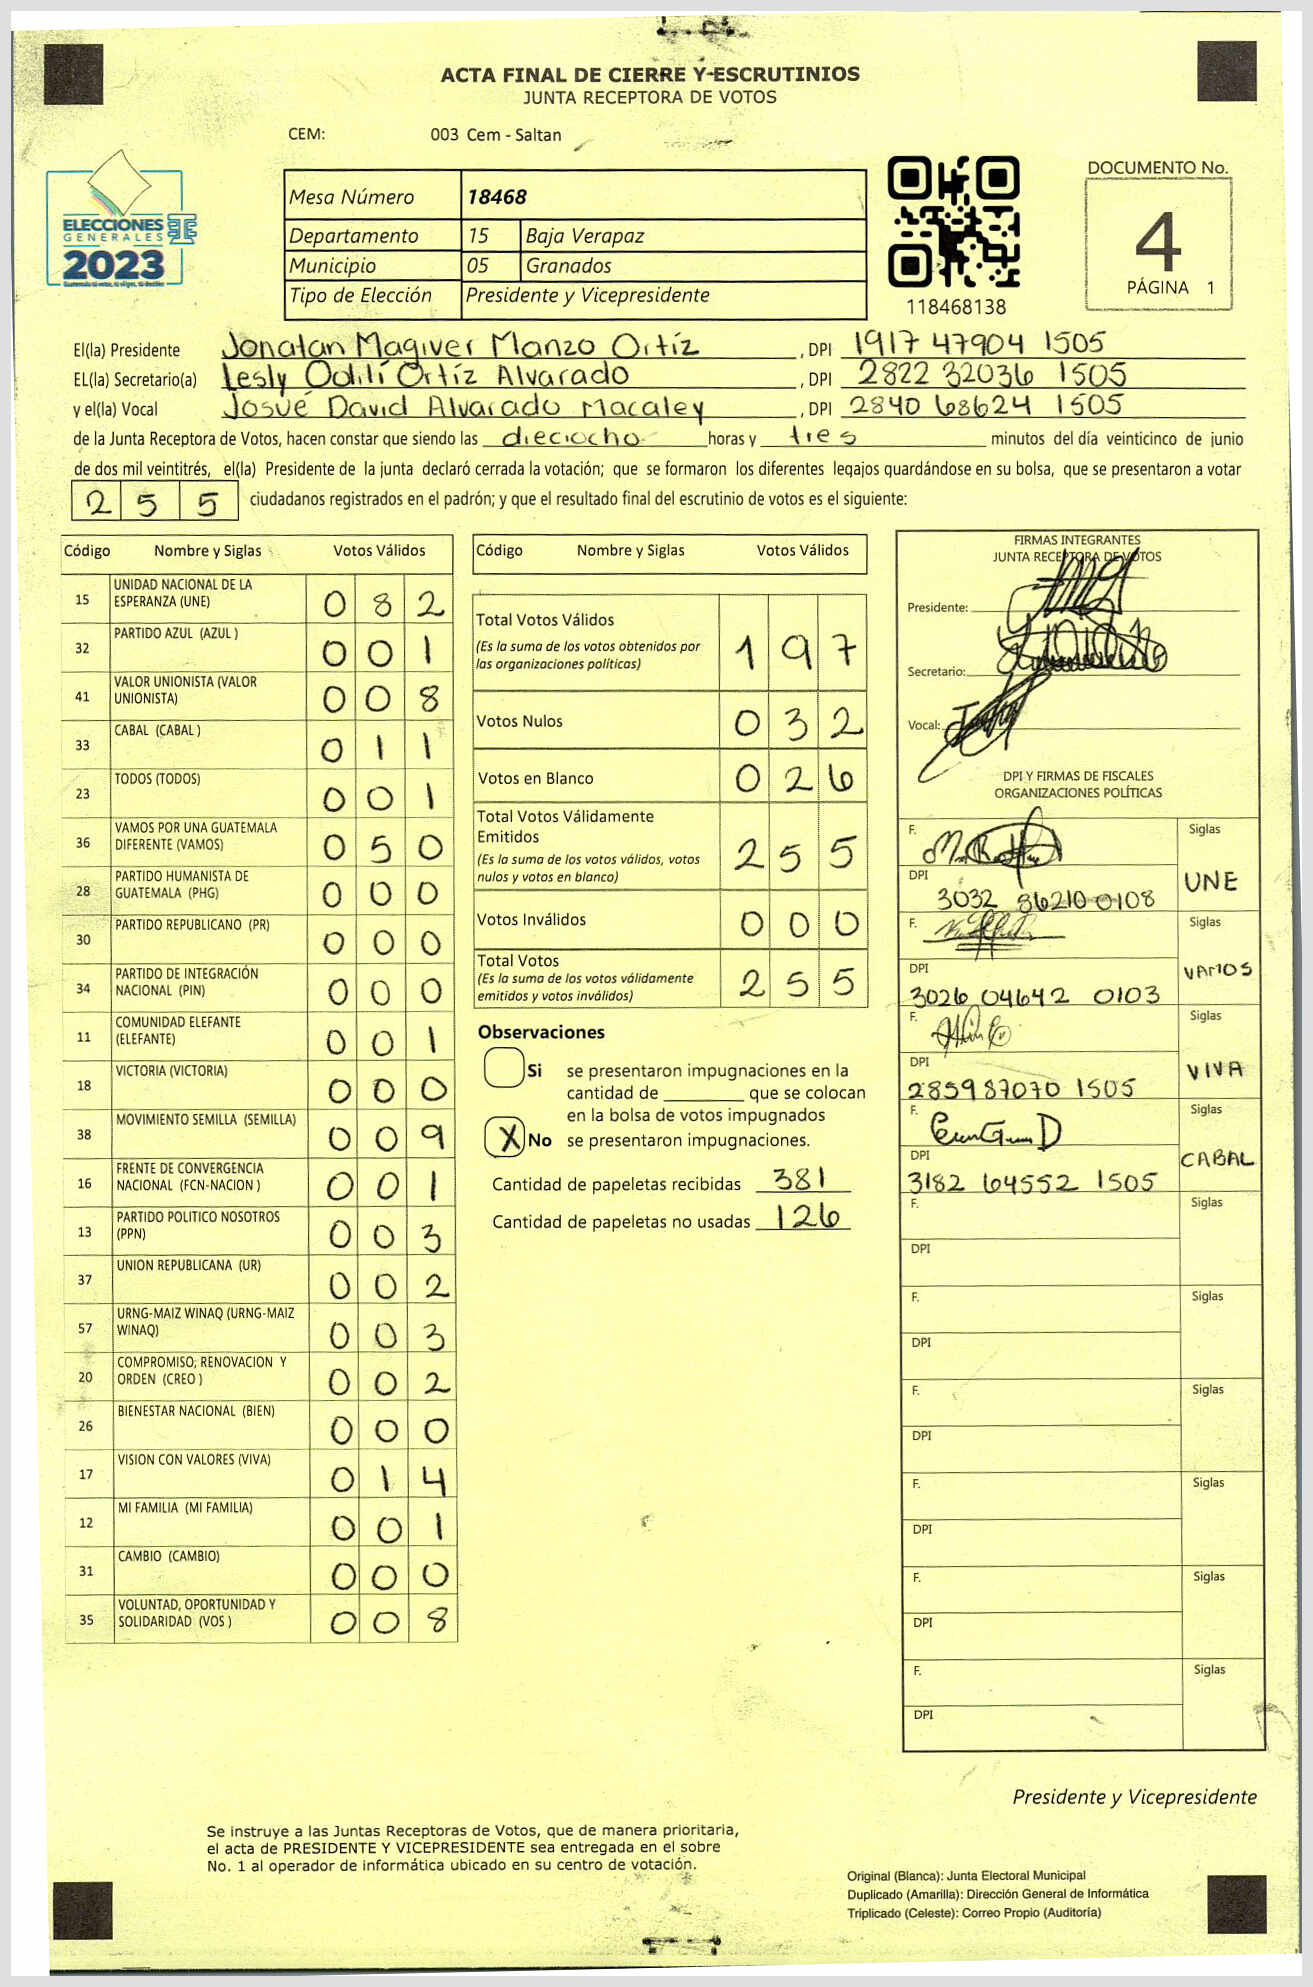 ACTA FINAL DE CIERRE Y ESCRUTINIOS
JUNTA RECEPTORA DE VOTOS
CEM: 003 Cem - Saltan
ELECCIONES
GENERALES
2023
Mesa Número 18468
Departamento 15 Baja Verapaz
Municipio 05 Granados
Tipo de Elección Presidente y Vicepresidente
118468138
DOCUMENTO No.
4
PÁGINA 1
El(la) Presidente Jonatan Magiver Manzo Ortíz, DPI 1917 47904 1505
EL(la) Secretario(a) Lesly Odilí Ortíz Alvarado, DPI 2822 32036 1505
y el(la) Vocal Josué David Alvarado Macaley, DPI 2840 68624 1505
de la Junta Receptora de Votos, hacen constar que siendo las dieciocho horas y tres minutos del día veinticinco de junio
de dos mil veintitrés, el(la) Presidente de la junta declaró cerrada la votación; que se formaron los diferentes legajos quardándose en su bolsa, que se presentaron a votar
255 ciudadanos registrados en el padrón; y que el resultado final del escrutinio de votos es el siguiente:
Código Nombre y Siglas Votos Válidos
15 UNIDAD NACIONAL DE LA
ESPERANZA (UNE) 0 8 2
32 PARTIDO AZUL (AZUL ) 0 0 1
41 VALOR UNIONISTA (VALOR
UNIONISTA) 0 0 8
33 CABAL (CABAL ) 0 1 1
23 TODOS (TODOS) 0 0 1
36 VAMOS POR UNA GUATEMALA
DIFERENTE (VAMOS) 0 5 0
28 PARTIDO HUMANISTA DE
GUATEMALA (PHG) 0 0 0
30 PARTIDO REPUBLICANO (PR) 0 0 0
34 PARTIDO DE INTEGRACIÓN
NACIONAL (PIN) 0 0 0
11 COMUNIDAD ELEFANTE
(ELEFANTE) 0 0 1
18 VICTORIA (VICTORIA) 0 0 0
38 MOVIMIENTO SEMILLA (SEMILLA) 0 0 9
16 FRENTE DE CONVERGENCIA
NACIONAL (FCN-NACION ) 0 0 1
13 PARTIDO POLITICO NOSOTROS
(PPN) 0 0 3
37 UNION REPUBLICANA (UR) 0 0 2
57 URNG-MAIZ WINAQ (URNG-MAIZ
WINAQ) 0 0 3
20 COMPROMISO, RENOVACION Y
ORDEN (CREO ) 0 0 2
26 BIENESTAR NACIONAL (BIEN) 0 0 0
17 VISION CON VALORES (VIVA) 0 1 4
12 MI FAMILIA (MI FAMILIA) 0 0 1
31 CAMBIO (CAMBIO) 0 0 0
35 VOLUNTAD, OPORTUNIDAD Y
SOLIDARIDAD (VOS ) 0 0 8
Código Nombre y Siglas Votos Válidos
Total Votos Válidos
(Es la suma de los votos obtenidos por
las organizaciones políticas) 1 9 7
Votos Nulos 0 3 2
Votos en Blanco 0 2 6
Total Votos Válidamente
Emitidos
(Es la suma de los votos válidos, votos
nulos y votos en blanco) 2 5 5
Votos Inválidos 0 0 0
Total Votos
(Es la suma de los votos válidamente
emitidos y votos inválidos) 2 5 5
Observaciones
Si se presentaron impugnaciones en la
cantidad de ________ que se colocan
en la bolsa de votos impugnados
X No se presentaron impugnaciones.
Cantidad de papeletas recibidas 381
Cantidad de papeletas no usadas 126
FIRMAS INTEGRANTES
JUNTA RECEPTORA DE VOTOS
Presidente:
Secretario:
Vocal:
DPI Y FIRMAS DE FISCALES
ORGANIZACIONES POLÍTICAS
F. Siglas
DPI UNE
3032 86210 0108
F. Siglas
DPI VAMOS
3026 04642 0103
F. Siglas
DPI VIVA
2859 87070 1505
F. Siglas
DPI CABAL
3182 64552 1505
F. Siglas
DPI
F. Siglas
DPI
F. Siglas
DPI
F. Siglas
DPI
F. Siglas
DPI
F. Siglas
DPI
Presidente y Vicepresidente
Se instruye a las Juntas Receptoras de Votos, que de manera prioritaria,
el acta de PRESIDENTE Y VICEPRESIDENTE sea entregada en el sobre
No. 1 al operador de informática ubicado en su centro de votación.
Original (Blanca): Junta Electoral Municipal
Duplicado (Amarilla): Dirección General de Informática
Triplicado (Celeste): Correo Propio (Auditoría)